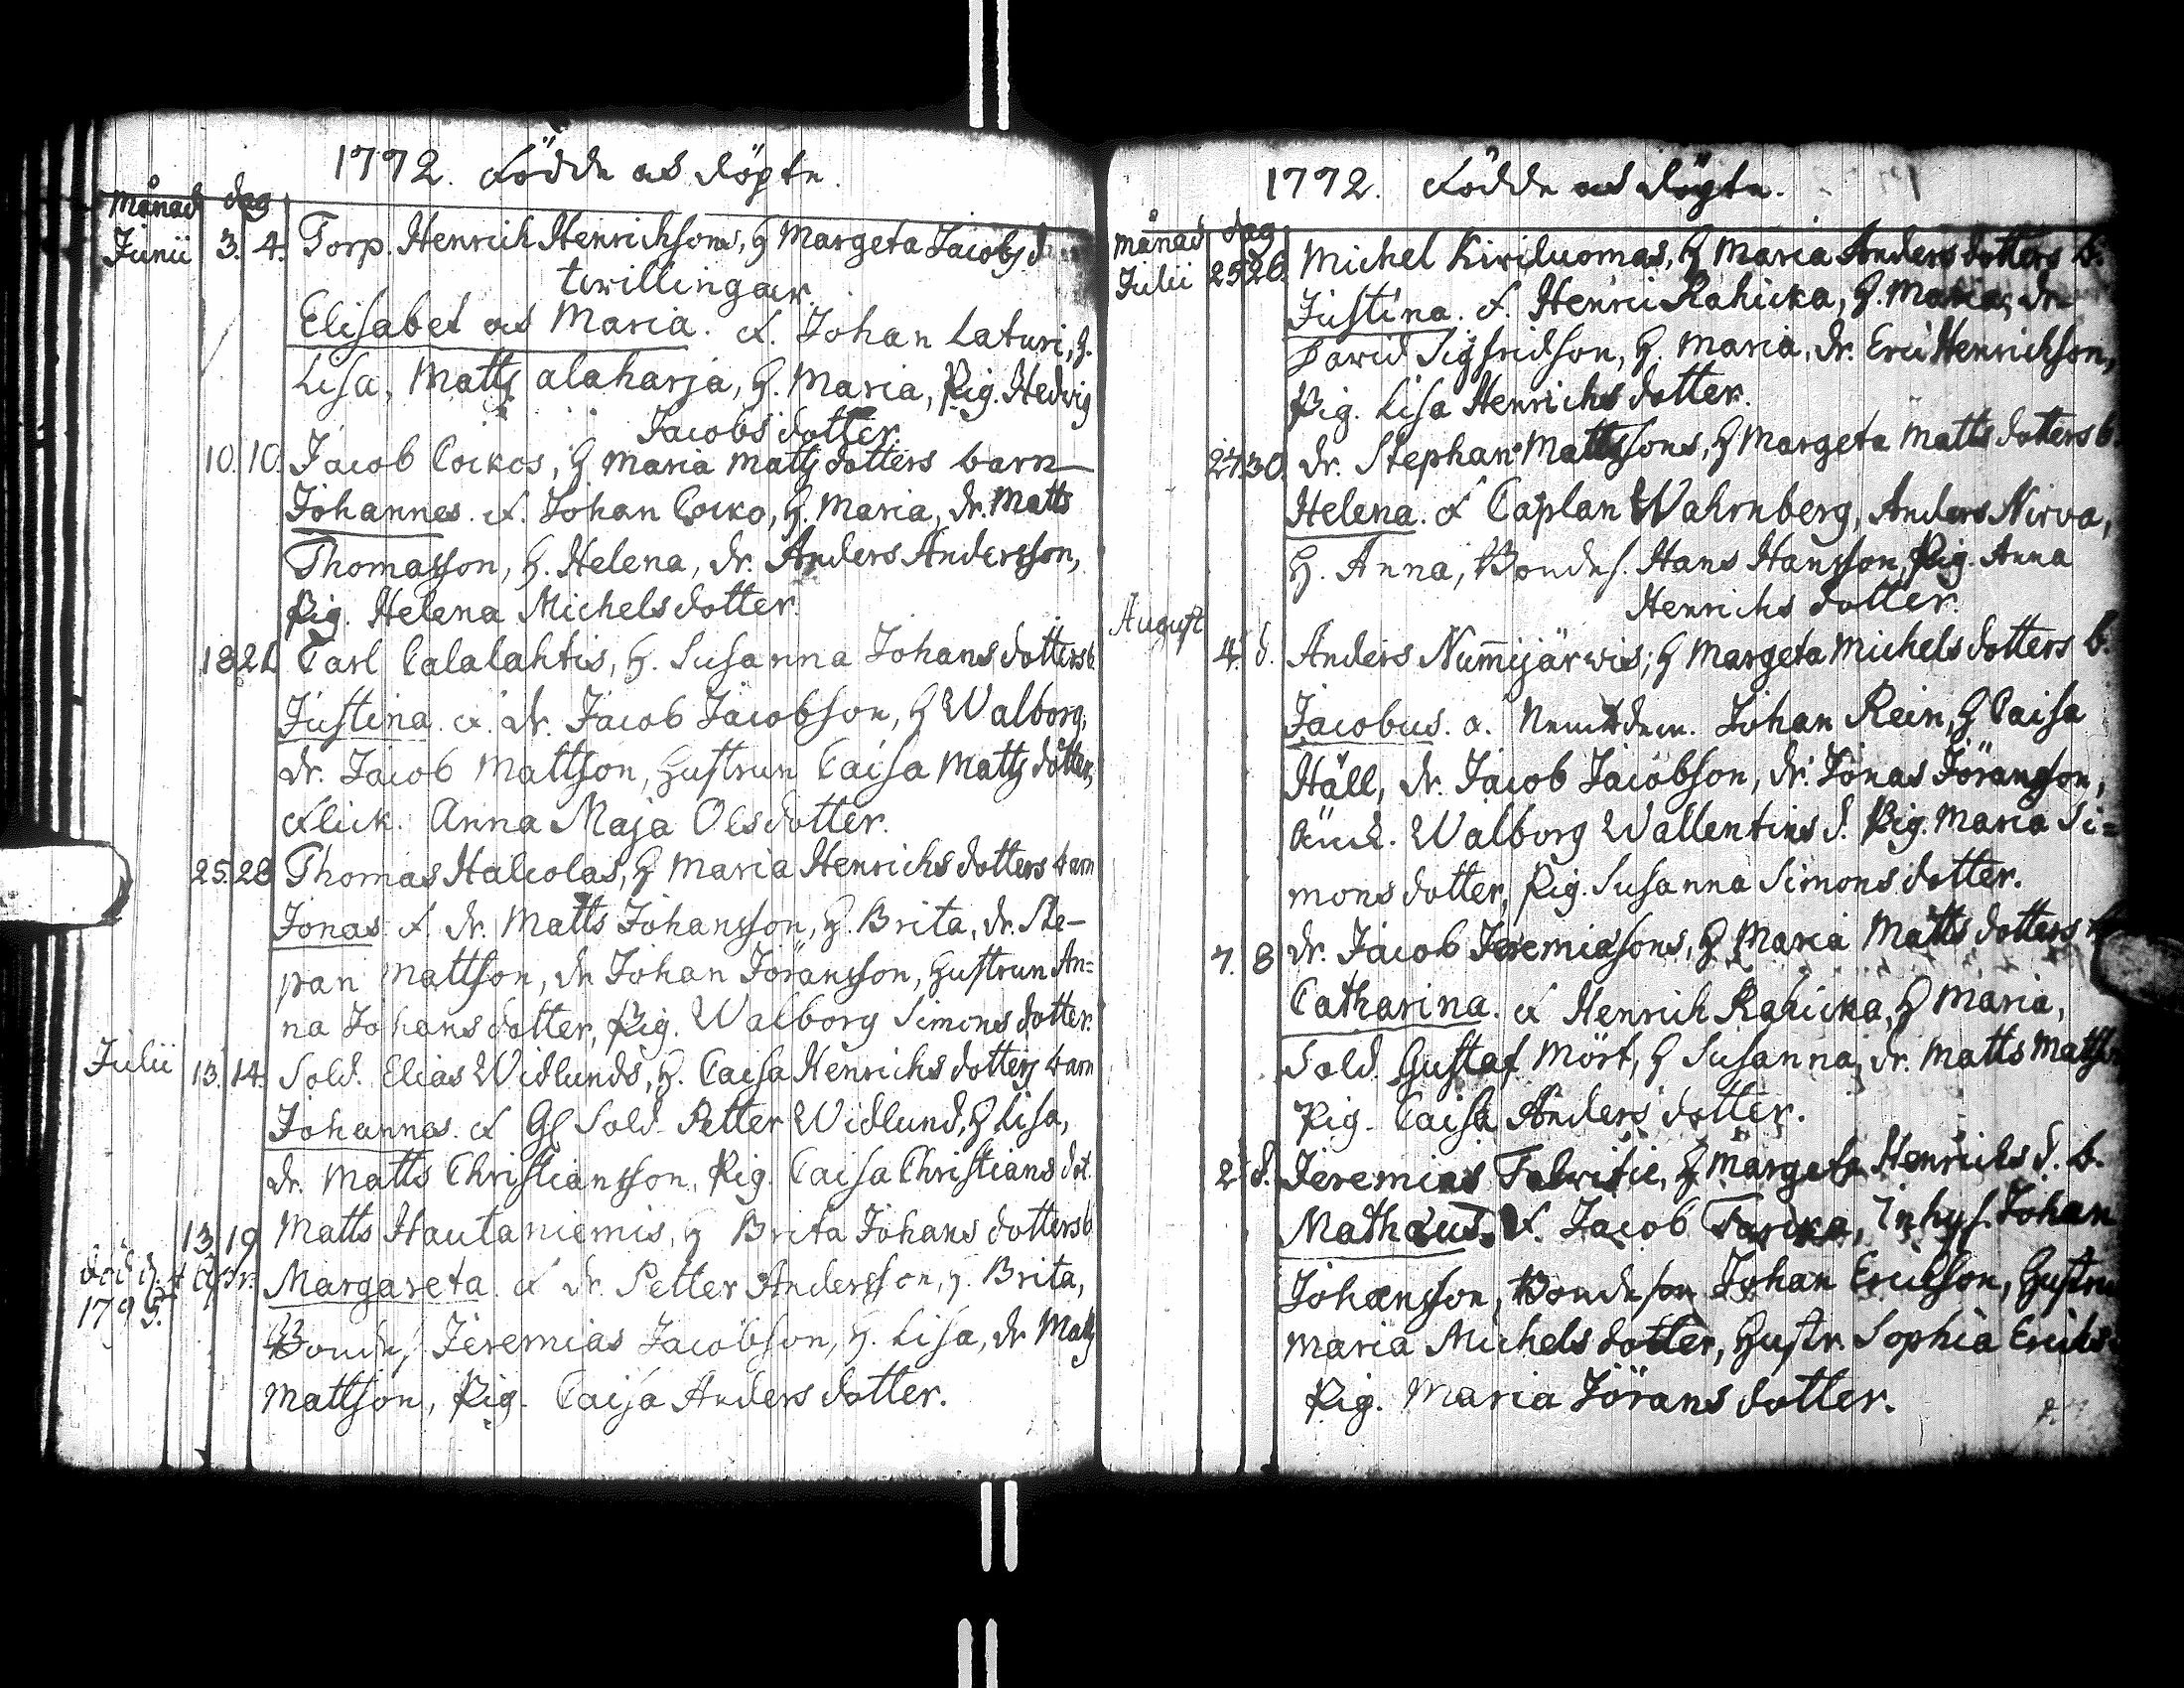 1772. Födde och döpte.
Månad dag
Junii 3. 4. Torp. Henrich Henrichsons, H Margeta Jacobs d
twillingar.
Elisabet och Maria. F. Johan Laturi, H.
Lisa, Matts alaharja, H. Maria, Pig. Hedvig
Jacobs dotter.
10. 10. Jacob Cockos, H Maria Matts dotters barn
Johannes. F. Johan Cocko, H. Maria, Dr. Matts
Thomasson, H. Helena, Dr. Anders Andersson,
Pig. Helena Michels dotter.
18 21 Carl Calalahtis, H. Susanna Johans dotters b.
Justina. F. Dr. Jacob Jacobson, H Walborg,
Dr. Jacob Mattson, Hustrun Caisa Matts dotter,
Flick. Anna Maja Olsdotter.
25. 28 Thomas Halcolas, H Maria Henrichs dotters barn
Jonas. F. Dr. Matts Johansson, H. Brita, Dr. Ste-
pan Mattson, Dr Johan Göransson, Hustrun An=
na Johans dotter, Pig. Walborg Simons dotter.
Julii 13. 14. Sold. Elias Widlunds, H. Caisa Henrichs dotters barn
Johannes. F Gl Sold. Petter Widlund, H Lisa,
Dr. Matts Christiansson, Pig. Caisa Christians dot.
13 19 Matts Hautaniemis, H Brita Johans dotters b
död d. 4 Apr. Margareta. F Dr. Petter Andersson, H. Brita,
1795.
Bondes. Jeremias Jacobson, H. Lisa, Dr Matts
Mattson, Pig. Caisa Anders dotter.
1772. Födde och döpte.
Månad dag
Julii 25 26. Michel Kiriluomas, H Maria Anders dotters b.
Justina. F. Henric Rahicka, H. Maria, Dr
David Sigfridson, H. Maria, Dr. Eric Henrichson,
Pig. Lisa Henrichs dotter.
27. 30. Dr. Stephan Mattssons, H Margeta Matts dotters b.
Helena. F Caplan Wahrnberg, Anders Nirva,
H. Anna, Bondes. Hans Hansson, Pig. Anna
Henrichs dotter.
August
4. d. Anders Num̅ijärvis, H Margeta Michels dotters b.
Jacobus. F. Nemdem. Johan Rein, H Caisa
Häll, Dr. Jacob Jacobson, Dr. Jonas Göransson,
Walborg Wallentins d. Pig. Maria Si=
mons dotter, Pig. Susanna Simons dotter.
7. 8 Dr. Jacob Jeremiasons, H Maria Matts dotters
Catharina. F Henrich Rahicka, H Maria,
Sold. Gustaf Mört, H Susanna, Dr. Matts Mattson
Pig. Caisa Anders dotter.
2 d. Jeremias H Margeta Henrichs d. b.
Mathæus. F. Jacob Inhys. Johan
Johansson, Bondeson Johan Ericson, Hustru
Maria Michels dotter, Hustr. Sophia Erics
Pig. Maria Jörans dotter.